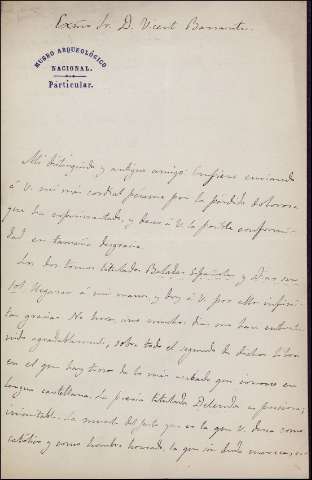 Exmo Sr. D. Vicent Barrante.
MUSEO ARQUEOLÓGICO
NACIONAL.
Particular.
Mi distinguido y antiguo amigo: Confieso enviando
á V. mi más cordial pésame por la pérdida dolorosa
que ha experimentado, y deseo á V. la posible conformi-
dad en tamaña desgracia.
Los dos tomos titulados Baladas Españolas y Dias sin
sol llegaron á mi mano, y doy á V. por ello infini-
tas gracias. No hace aun muchos dias me han entrete-
nido agradablemente, sobre todo el segundo de dichos libros
en el que hay trozos de lo más acabado que conozco en
lengua castellana. La poesia titulada Defensa es preciosa,
inimitable. La muerte del justo que es la que V. desea como
católico y como hombre honrado, la que sin duda merece, es